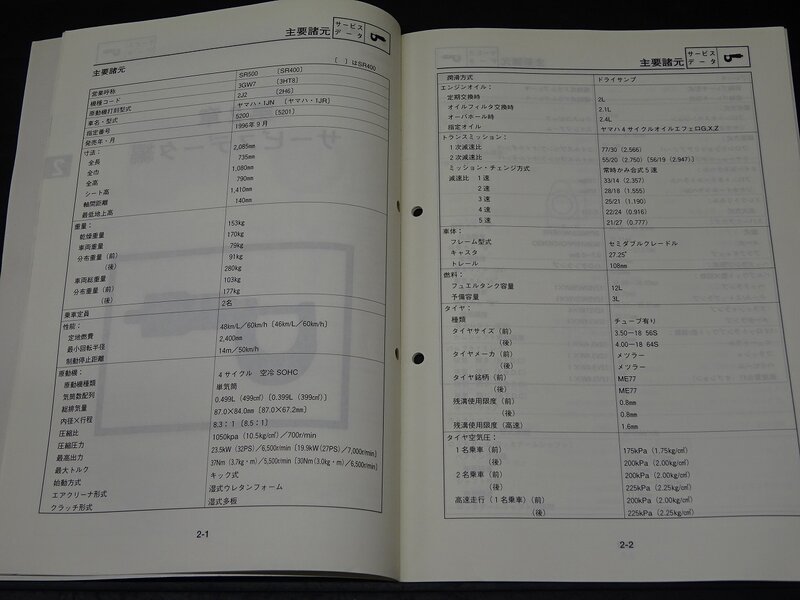 主要諸元
サービス
データ
主要諸元
〔 〕はSR400
営業呼称 SR500 〔SR400〕
機種コード 3GW7 〔3HT8〕
原動機打刻型式 2J2 〔2H6〕
車名・型式 ヤマハ・1JN 〔ヤマハ・1JR〕
指定番号 5200 〔5201〕
発売年・月 1996年9月
寸法：
全長 2,085mm
全巾 735mm
全高 1,080mm
シート高 790mm
軸間距離 1,410mm
最低地上高 140mm
重量：
乾燥重量 153kg
車両重量 170kg
分布重量（前） 79kg
（後） 91kg
車両総重量 280kg
分布重量（前） 103kg
（後） 177kg
乗車定員 2名
性能：
定地燃費 48km/L／60km/h 〔46km/L／60km/h〕
最小回転半径 2,400mm
制動停止距離 14m／50km/h
原動機：
原動機種類 4サイクル 空冷SOHC
気筒数配列 単気筒
総排気量 0.499L（499㎤）〔0.399L（399㎤）〕
内径×行程 87.0×84.0mm 〔87.0×67.2mm〕
圧縮比 8.3：1 〔8.5：1〕
圧縮圧力 1050kpa（10.5kg/㎠）／700r/min
最高出力 23.5kW（32PS）／6,500r/min 〔19.9kW（27PS）／7,000r/min〕
最大トルク 37Nm（3.7kg・m）／5,500r/min 〔30Nm（3.0kg・m）／6,500r/min〕
始動方式 キック式
エアクリーナ形式 湿式ウレタンフォーム
クラッチ形式 湿式多板
2-1
主要諸元
サービス
データ
潤滑方式 ドライサンプ
エンジンオイル：
定期交換時 2L
オイルフィルタ交換時 2.1L
オーバホール時 2.4L
指定オイル ヤマハ4サイクルオイルエフェロG,X,Z
トランスミッション：
1次減速比 77/30（2.566）
2次減速比 55/20（2.750）〔56/19（2.947）〕
ミッション・チェンジ方式 常時かみ合式5速
減速比 1速 33/14（2.357）
2速 28/18（1.555）
3速 25/21（1.190）
4速 22/24（0.916）
5速 21/27（0.777）
車体：
フレーム型式 セミダブルクレードル
キャスタ 27.25°
トレール 108mm
燃料：
フュエルタンク容量 12L
予備容量 3L
タイヤ：
種類 チューブ有り
タイヤサイズ（前） 3.50－18 56S
（後） 4.00－18 64S
タイヤメーカ（前） メツラー
（後） メツラー
タイヤ銘柄（前） ME77
（後） ME77
残溝使用限度（前） 0.8mm
（後） 0.8mm
残溝使用限度（高速） 1.6mm
タイヤ空気圧：
1名乗車（前） 175kPa（1.75kg/㎠）
（後） 200kPa（2.00kg/㎠）
2名乗車（前） 200kPa（2.00kg/㎠）
（後） 225kPa（2.25kg/㎠）
高速走行（1名乗車）（前） 200kPa（2.00kg/㎠）
（後） 225kPa（2.25kg/㎠）
2-2